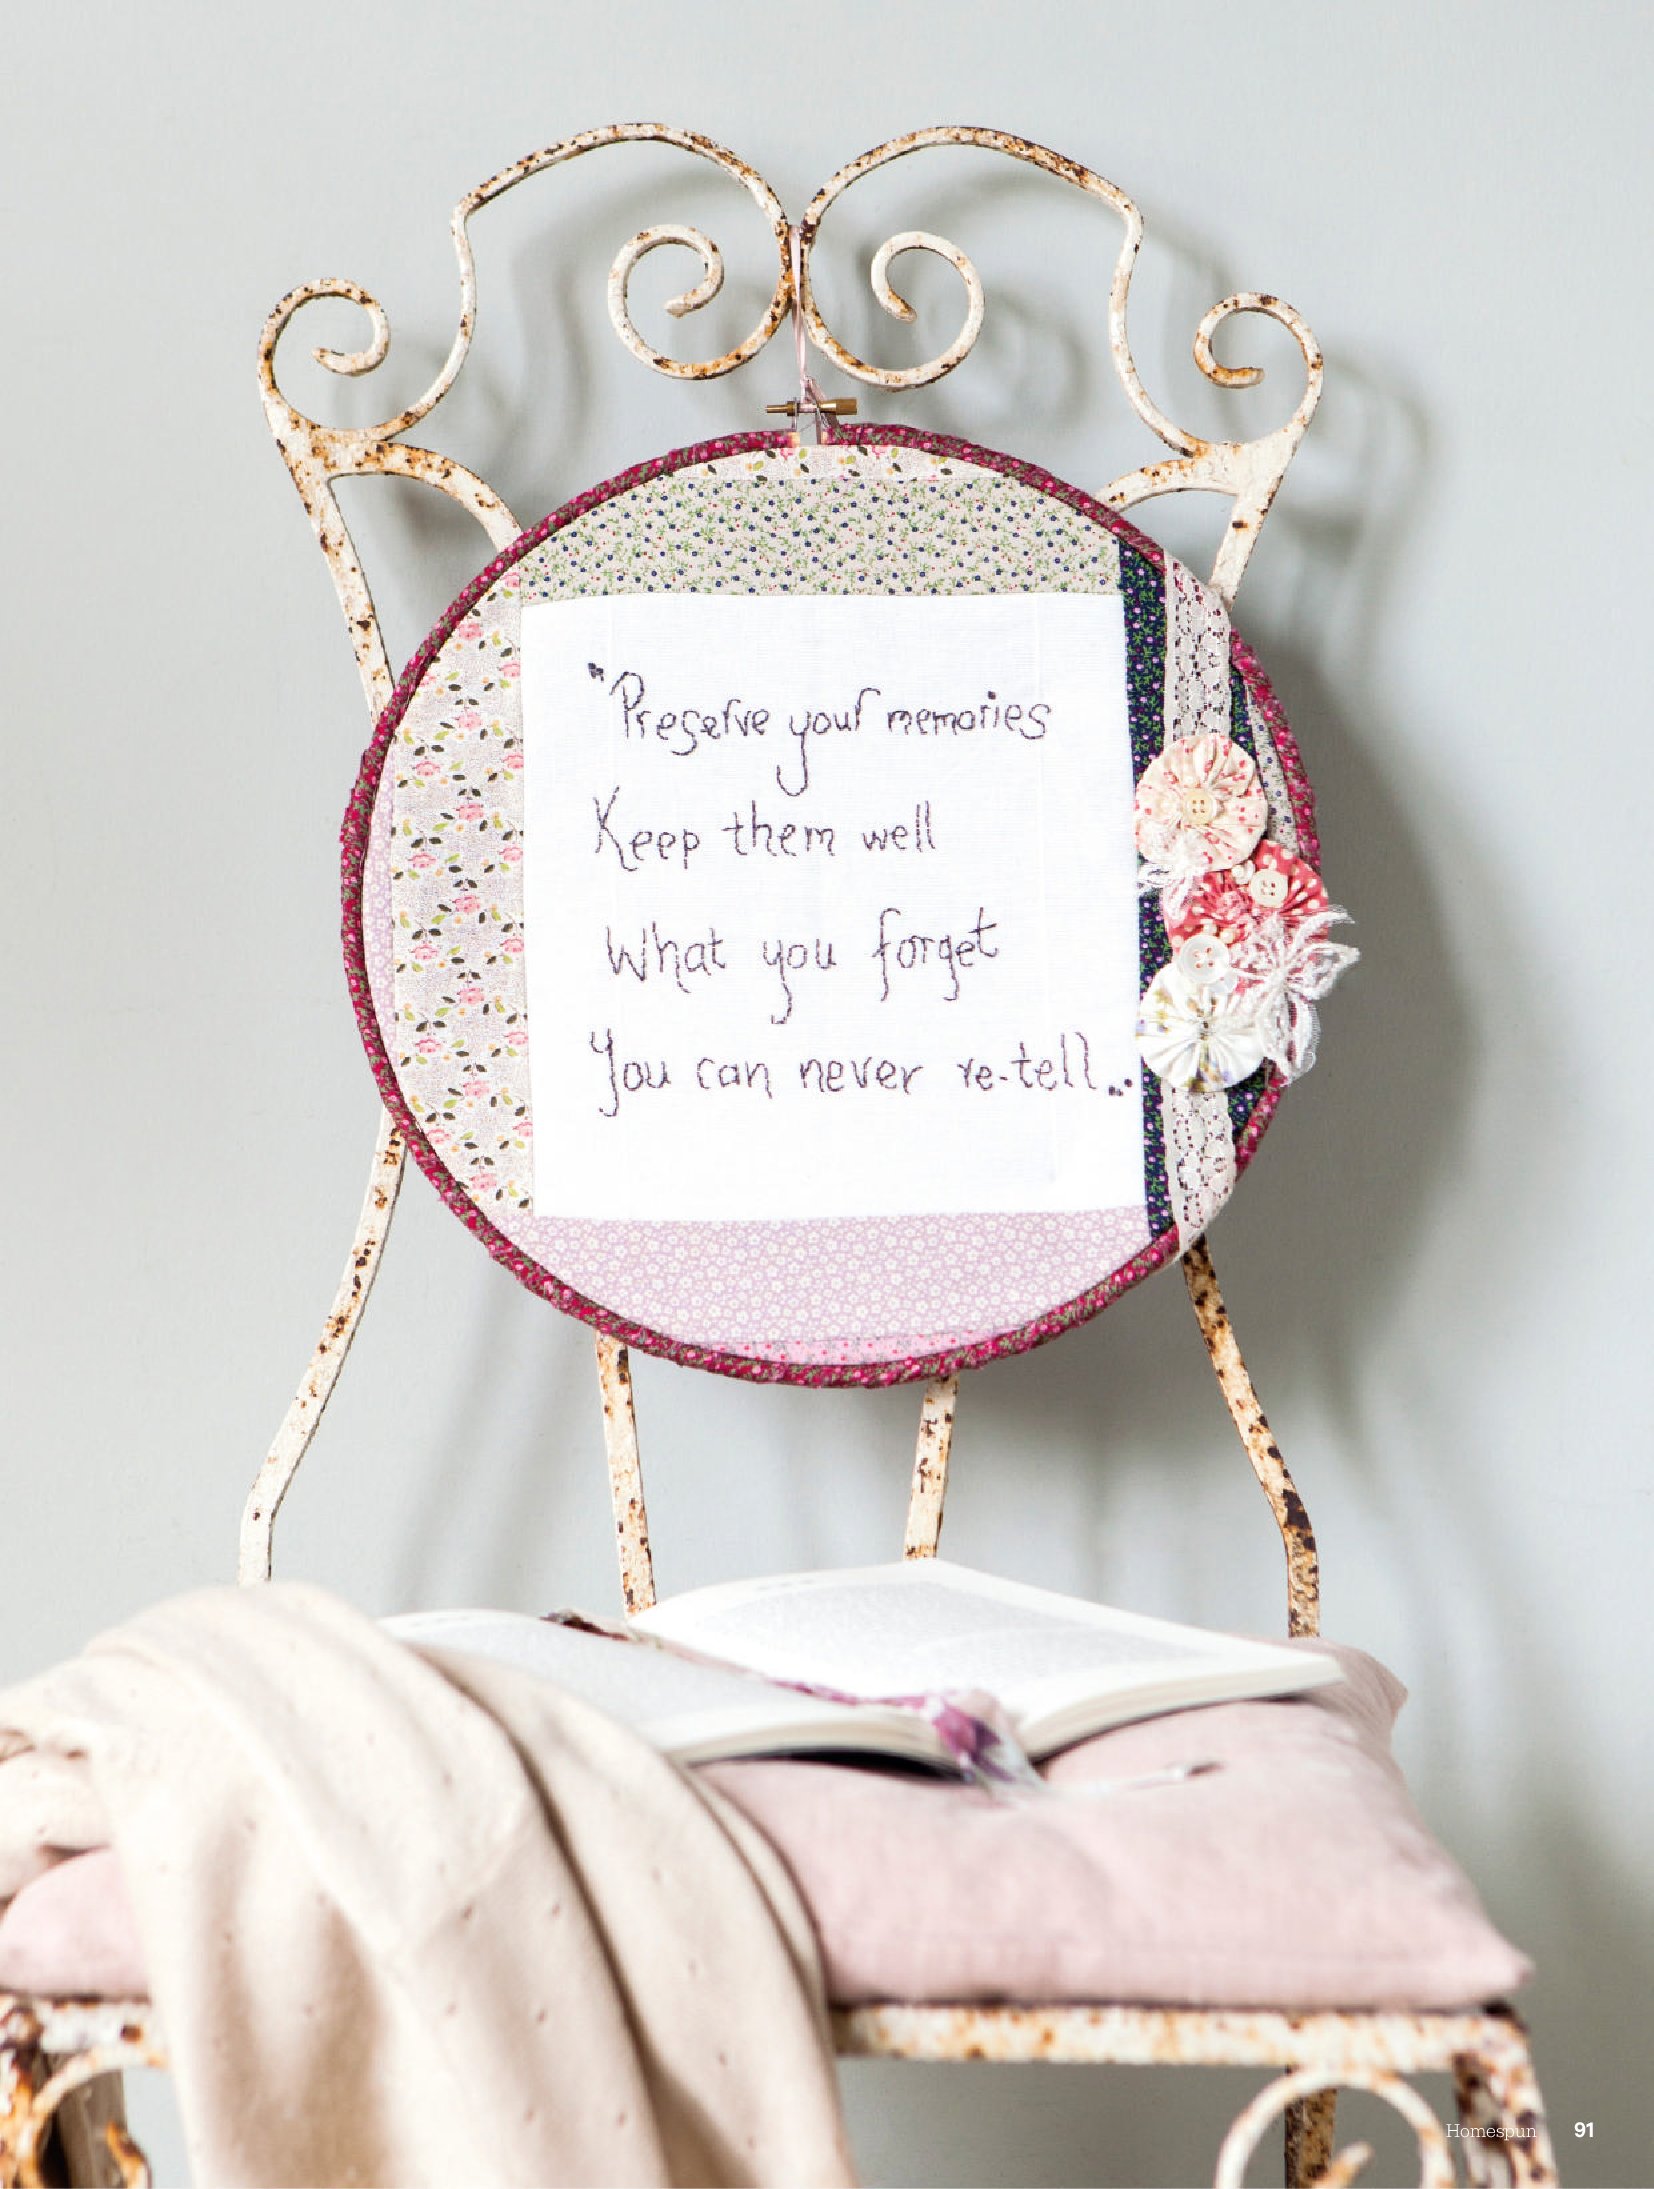 "Preserve your memories
Keep them well
What you forget
You can never re-tell..
Homespun 91